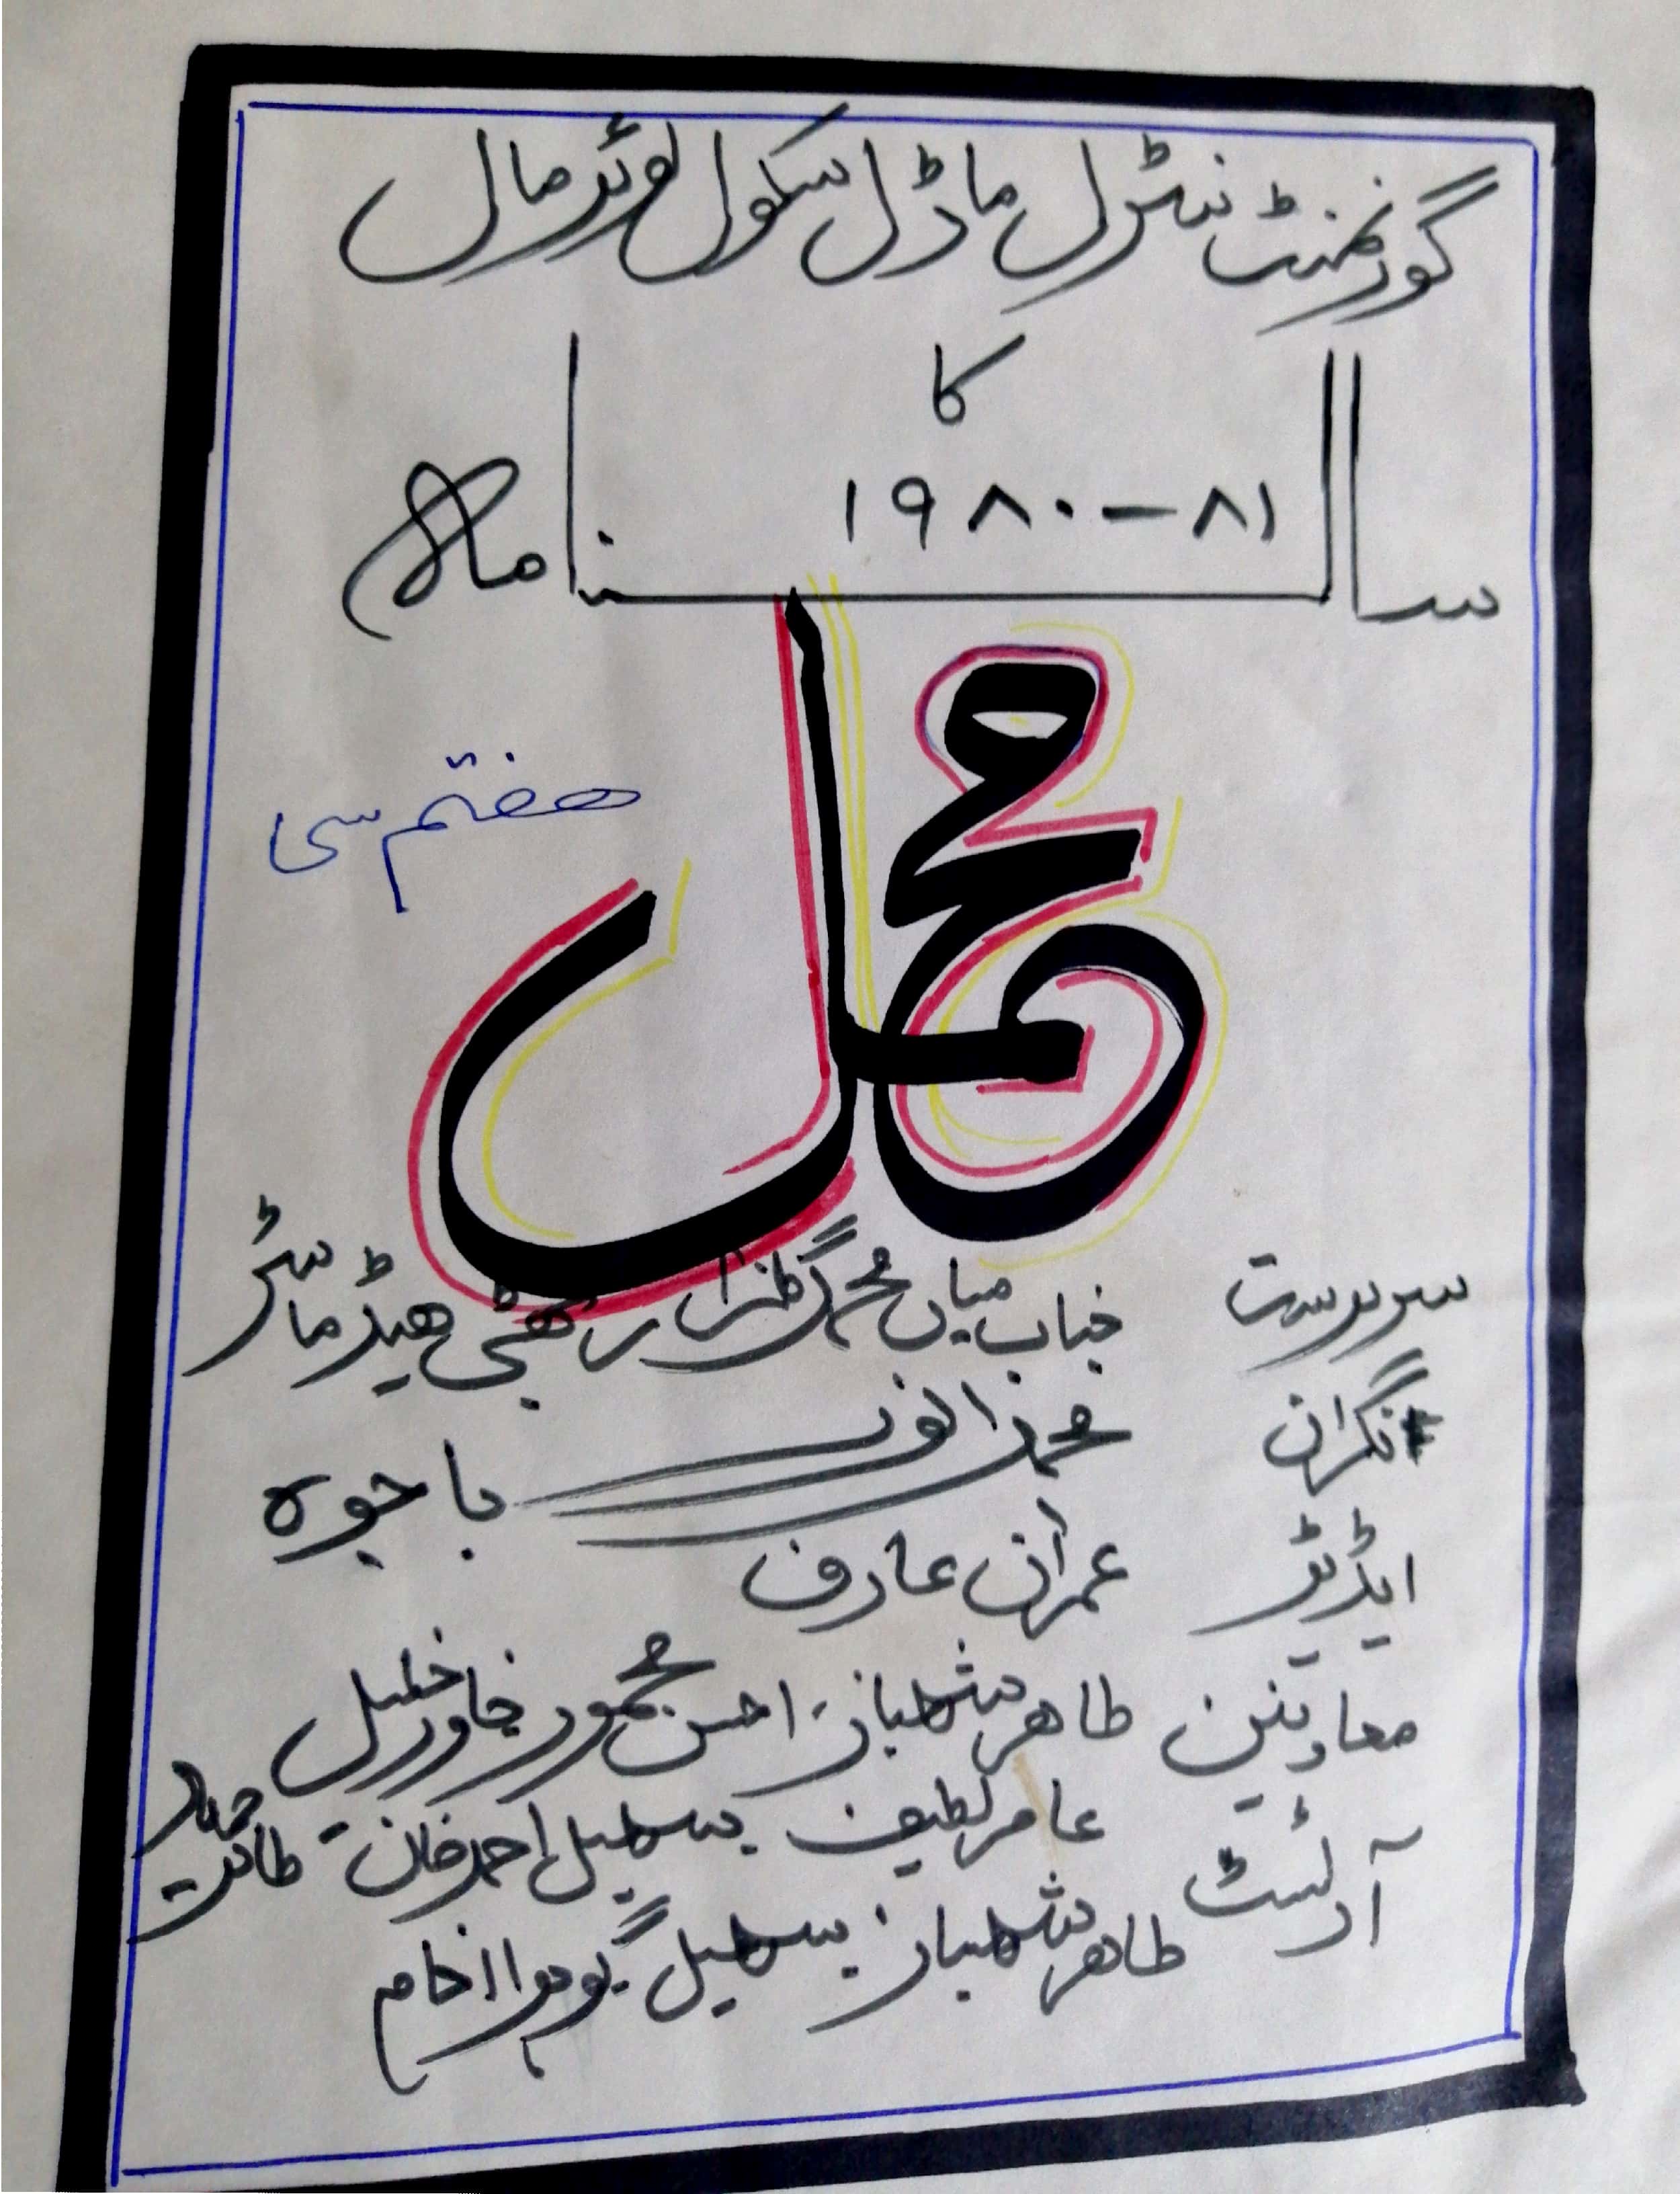 گورنمنٹ سنٹرل ماڈل سکول لوئر مال
کا
سالنامہ
۱۹۸۰-۸۱
محمل
ھفتم سی
سرپرست جناب میاں محمد گلزار بھٹی ھیڈ ماسٹر
نگران محمد انور باجوہ
ایڈیٹر عمران عارف
معاونین طاھر شھباز، احسن محمود، خاور خلیل
عامر لطیف، سھیل احمد خان، طارق حمید
آرٹسٹ طاھر شھباز، سھیل